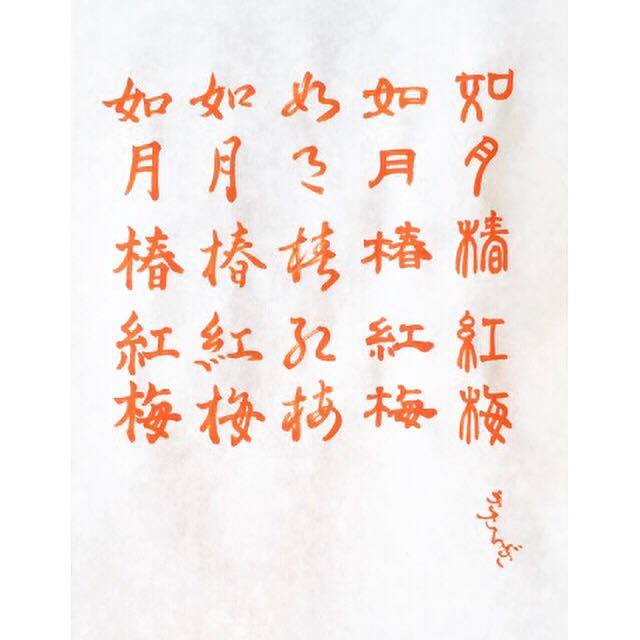 如月椿紅梅
如月椿紅梅
如月椿紅梅
如月椿紅梅
如月椿紅梅
きさらぎ